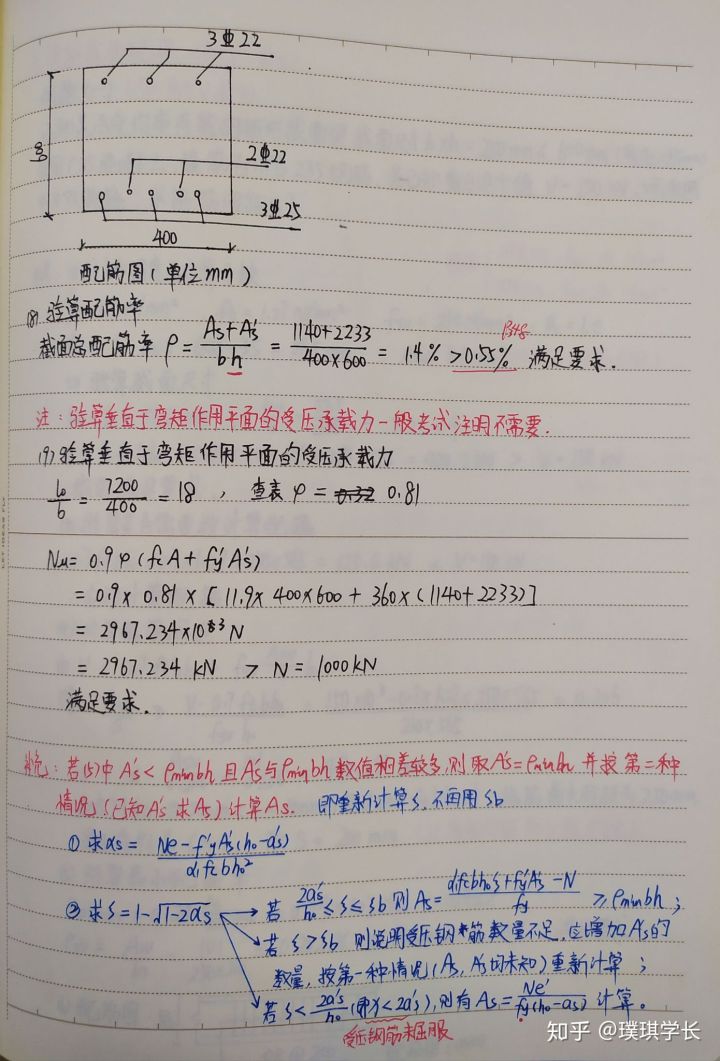 3⌀22
2⌀22
3⌀25
600
400
配筋图(单位mm)
(8) 验算配筋率
截面总配筋率 ρ = (As+A's)/(bh) = (1140+2233)/(400×600) = 1.4% > 0.55% 满足要求.
注:验算垂直于弯矩作用平面的受压承载力一般考试注明不需要.
(9) 验算垂直于弯矩作用平面的受压承载力
l₀/b = 7200/400 = 18 , 查表 φ = 0.81
Nu = 0.9φ(fcA + f'yA's)
= 0.9 × 0.81 × [11.9 × 400×600 + 360×(1140+2233)]
= 2967.234×10³ N
= 2967.234 kN > N = 1000kN
满足要求.
补充:若(5)中 A's < ρ'min bh 且 A's 与 ρ'min bh 数值相差较多,则取 A's = ρ'min bh 并按第二种
情况(已知A's 求As)计算As. 即重新计算ξ,不再用ξb
① 求αs = (Ne - f'yA's(h₀-a's))/(α₁fcbh₀²)
② 求ξ = 1-√(1-2αs) 若 2a's/h₀ ≤ ξ ≤ ξb 则 As = (α₁fcbh₀ξ + f'yA's - N)/fy ≥ ρmin bh ;
若 ξ > ξb 则说明受压钢筋数量不足,应增加A's的
数量,按第一种情况(As, A's均未知)重新计算 ;
若 ξ < 2a's/h₀ (即x<2a's), 则有 As = Ne'/(fy(h₀-as)) 计算。
受压钢筋未屈服
知乎 @璞琪学长